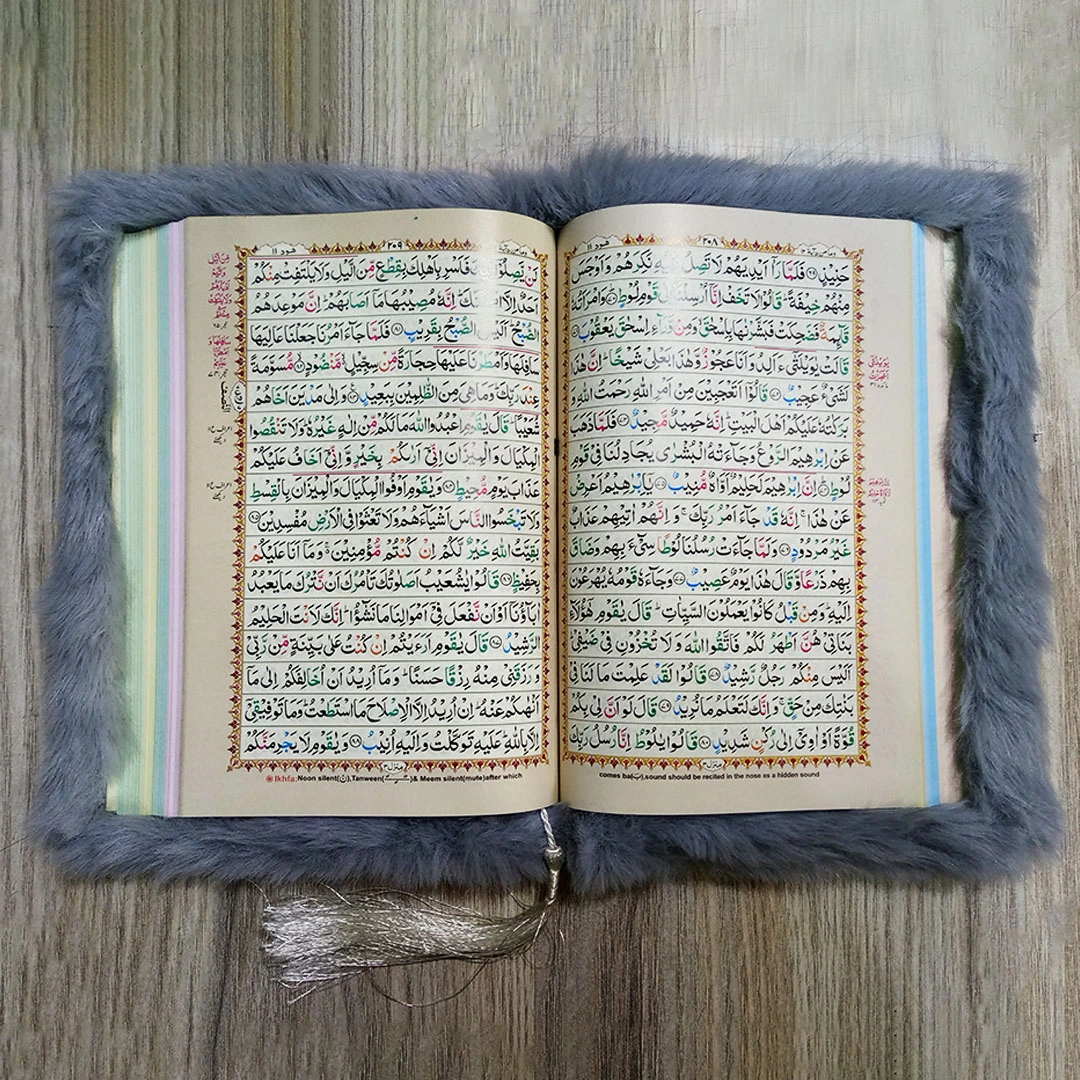 ومامن دآبة ١٢ ٢٠٨ هود ١١
حَنِيْذٍ ۝ فَلَمَّا رَاٰۤ اَيْدِيَهُمْ لَا تَصِلُ اِلَيْهِ نَكِرَهُمْ وَاَوْجَسَ
مِنْهُمْ خِيْفَةً ؕ قَالُوْا لَا تَخَفْ اِنَّاۤ اُرْسِلْنَاۤ اِلٰى قَوْمِ لُوْطٍ ۝ وَامْرَاَتُهٗ
قَآئِمَةٌ فَضَحِكَتْ فَبَشَّرْنٰهَا بِاِسْحٰقَ ۙ وَمِنْ وَّرَآءِ اِسْحٰقَ يَعْقُوْبَ ۝
قَالَتْ يٰوَيْلَتٰٓى ءَاَلِدُ وَاَنَا عَجُوْزٌ وَّهٰذَا بَعْلِيْ شَيْخًا ؕ اِنَّ هٰذَا
لَشَيْءٌ عَجِيْبٌ ۝ قَالُوْۤا اَتَعْجَبِيْنَ مِنْ اَمْرِ اللّٰهِ رَحْمَتُ اللّٰهِ وَ
بَرَكٰتُهٗ عَلَيْكُمْ اَهْلَ الْبَيْتِ ؕ اِنَّهٗ حَمِيْدٌ مَّجِيْدٌ ۝ فَلَمَّا ذَهَبَ
عَنْ اِبْرٰهِيْمَ الرَّوْعُ وَجَآءَتْهُ الْبُشْرٰى يُجَادِلُنَا فِيْ قَوْمِ
لُوْطٍ ۝ اِنَّ اِبْرٰهِيْمَ لَحَلِيْمٌ اَوَّاهٌ مُّنِيْبٌ ۝ يٰۤاِبْرٰهِيْمُ اَعْرِضْ
عَنْ هٰذَا ۚ اِنَّهٗ قَدْ جَآءَ اَمْرُ رَبِّكَ ۚ وَاِنَّهُمْ اٰتِيْهِمْ عَذَابٌ
غَيْرُ مَرْدُوْدٍ ۝ وَلَمَّا جَآءَتْ رُسُلُنَا لُوْطًا سِيْٓءَ بِهِمْ وَضَاقَ
بِهِمْ ذَرْعًا وَّقَالَ هٰذَا يَوْمٌ عَصِيْبٌ ۝ وَجَآءَهٗ قَوْمُهٗ يُهْرَعُوْنَ
اِلَيْهِ ؕ وَمِنْ قَبْلُ كَانُوْا يَعْمَلُوْنَ السَّيِّاٰتِ ؕ قَالَ يٰقَوْمِ هٰۤؤُلَآءِ
بَنَاتِيْ هُنَّ اَطْهَرُ لَكُمْ فَاتَّقُوا اللّٰهَ وَلَا تُخْزُوْنِ فِيْ ضَيْفِيْ ؕ
اَلَيْسَ مِنْكُمْ رَجُلٌ رَّشِيْدٌ ۝ قَالُوْا لَقَدْ عَلِمْتَ مَا لَنَا فِيْ
بَنٰتِكَ مِنْ حَقٍّ ۚ وَاِنَّكَ لَتَعْلَمُ مَا نُرِيْدُ ۝ قَالَ لَوْ اَنَّ لِيْ بِكُمْ
قُوَّةً اَوْ اٰوِيْۤ اِلٰى رُكْنٍ شَدِيْدٍ ۝ قَالُوْا يٰلُوْطُ اِنَّا رُسُلُ رَبِّكَ
منزل ٣
comes ba(ب),sound should be recited in the nose as a hidden sound
ومامن دآبة ١٢ ٢٠٩ هود ١١
لَنْ يَّصِلُوْۤا اِلَيْكَ فَاَسْرِ بِاَهْلِكَ بِقِطْعٍ مِّنَ الَّيْلِ وَلَا يَلْتَفِتْ مِنْكُمْ
اَحَدٌ اِلَّا امْرَاَتَكَ ؕ اِنَّهٗ مُصِيْبُهَا مَاۤ اَصَابَهُمْ ؕ اِنَّ مَوْعِدَهُمُ
الصُّبْحُ ؕ اَلَيْسَ الصُّبْحُ بِقَرِيْبٍ ۝ فَلَمَّا جَآءَ اَمْرُنَا جَعَلْنَا عَالِيَهَا
سَافِلَهَا وَاَمْطَرْنَا عَلَيْهَا حِجَارَةً مِّنْ سِجِّيْلٍ ۙ مَّنْضُوْدٍ ۝ مُّسَوَّمَةً
عِنْدَ رَبِّكَ ؕ وَمَا هِيَ مِنَ الظّٰلِمِيْنَ بِبَعِيْدٍ ۝ وَاِلٰى مَدْيَنَ اَخَاهُمْ
شُعَيْبًا ؕ قَالَ يٰقَوْمِ اعْبُدُوا اللّٰهَ مَا لَكُمْ مِّنْ اِلٰهٍ غَيْرُهٗ ؕ وَلَا تَنْقُصُوا
الْمِكْيَالَ وَالْمِيْزَانَ اِنِّيْۤ اَرٰىكُمْ بِخَيْرٍ وَّاِنِّيْۤ اَخَافُ عَلَيْكُمْ
عَذَابَ يَوْمٍ مُّحِيْطٍ ۝ وَيٰقَوْمِ اَوْفُوا الْمِكْيَالَ وَالْمِيْزَانَ بِالْقِسْطِ
وَلَا تَبْخَسُوا النَّاسَ اَشْيَآءَهُمْ وَلَا تَعْثَوْا فِي الْاَرْضِ مُفْسِدِيْنَ ۝
بَقِيَّتُ اللّٰهِ خَيْرٌ لَّكُمْ اِنْ كُنْتُمْ مُّؤْمِنِيْنَ ۚ وَمَاۤ اَنَا عَلَيْكُمْ
بِحَفِيْظٍ ۝ قَالُوْا يٰشُعَيْبُ اَصَلٰوتُكَ تَاْمُرُكَ اَنْ نَّتْرُكَ مَا يَعْبُدُ
اٰبَآؤُنَاۤ اَوْ اَنْ نَّفْعَلَ فِيْۤ اَمْوَالِنَا مَا نَشٰٓؤُا ؕ اِنَّكَ لَاَنْتَ الْحَلِيْمُ
الرَّشِيْدُ ۝ قَالَ يٰقَوْمِ اَرَءَيْتُمْ اِنْ كُنْتُ عَلٰى بَيِّنَةٍ مِّنْ رَّبِّيْ
وَرَزَقَنِيْ مِنْهُ رِزْقًا حَسَنًا ؕ وَمَاۤ اُرِيْدُ اَنْ اُخَالِفَكُمْ اِلٰى مَاۤ
اَنْهٰىكُمْ عَنْهُ ؕ اِنْ اُرِيْدُ اِلَّا الْاِصْلَاحَ مَا اسْتَطَعْتُ ؕ وَمَا تَوْفِيْقِيْۤ
اِلَّا بِاللّٰهِ ؕ عَلَيْهِ تَوَكَّلْتُ وَاِلَيْهِ اُنِيْبُ ۝ وَيٰقَوْمِ لَا يَجْرِمَنَّكُمْ
منزل ٣
Ikhfa:Noon silent(ن),Tanween & Meem silent(mute)after which